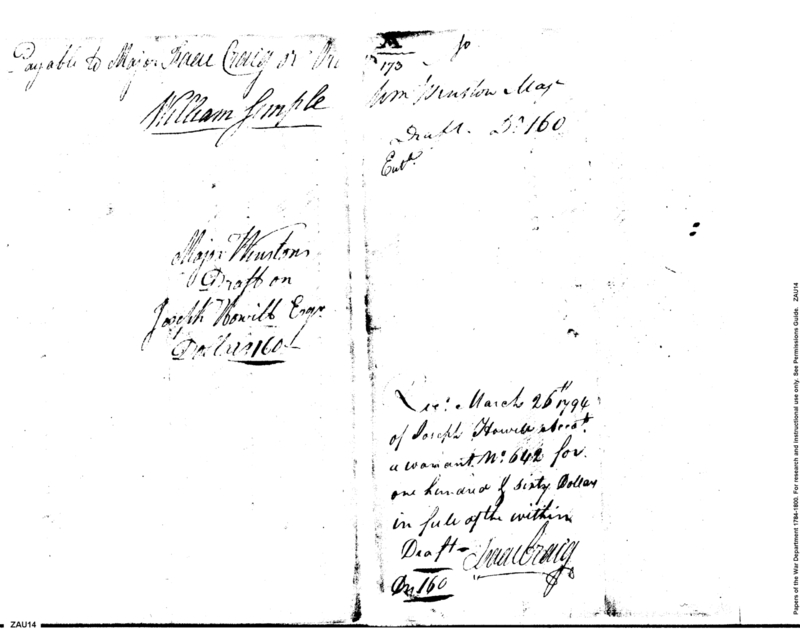 Payable to Major Isaac Craig or
William Semple
Major Winstons
Draft on
Joseph Howell Esqr
Dollars 160
173
Wm Winston Maj
Draft. Ds 160
Entd.
Recd. March 26th 1794
of Joseph Howell
a warrant No. 642 for
one hundred & sixty Dollars
in full of the within
Draft
Isaac Craig
Ds 160
ZAU14
Papers of the War Department 1784-1800. For research and instructional use only. See Permissions Guide. ZAU14